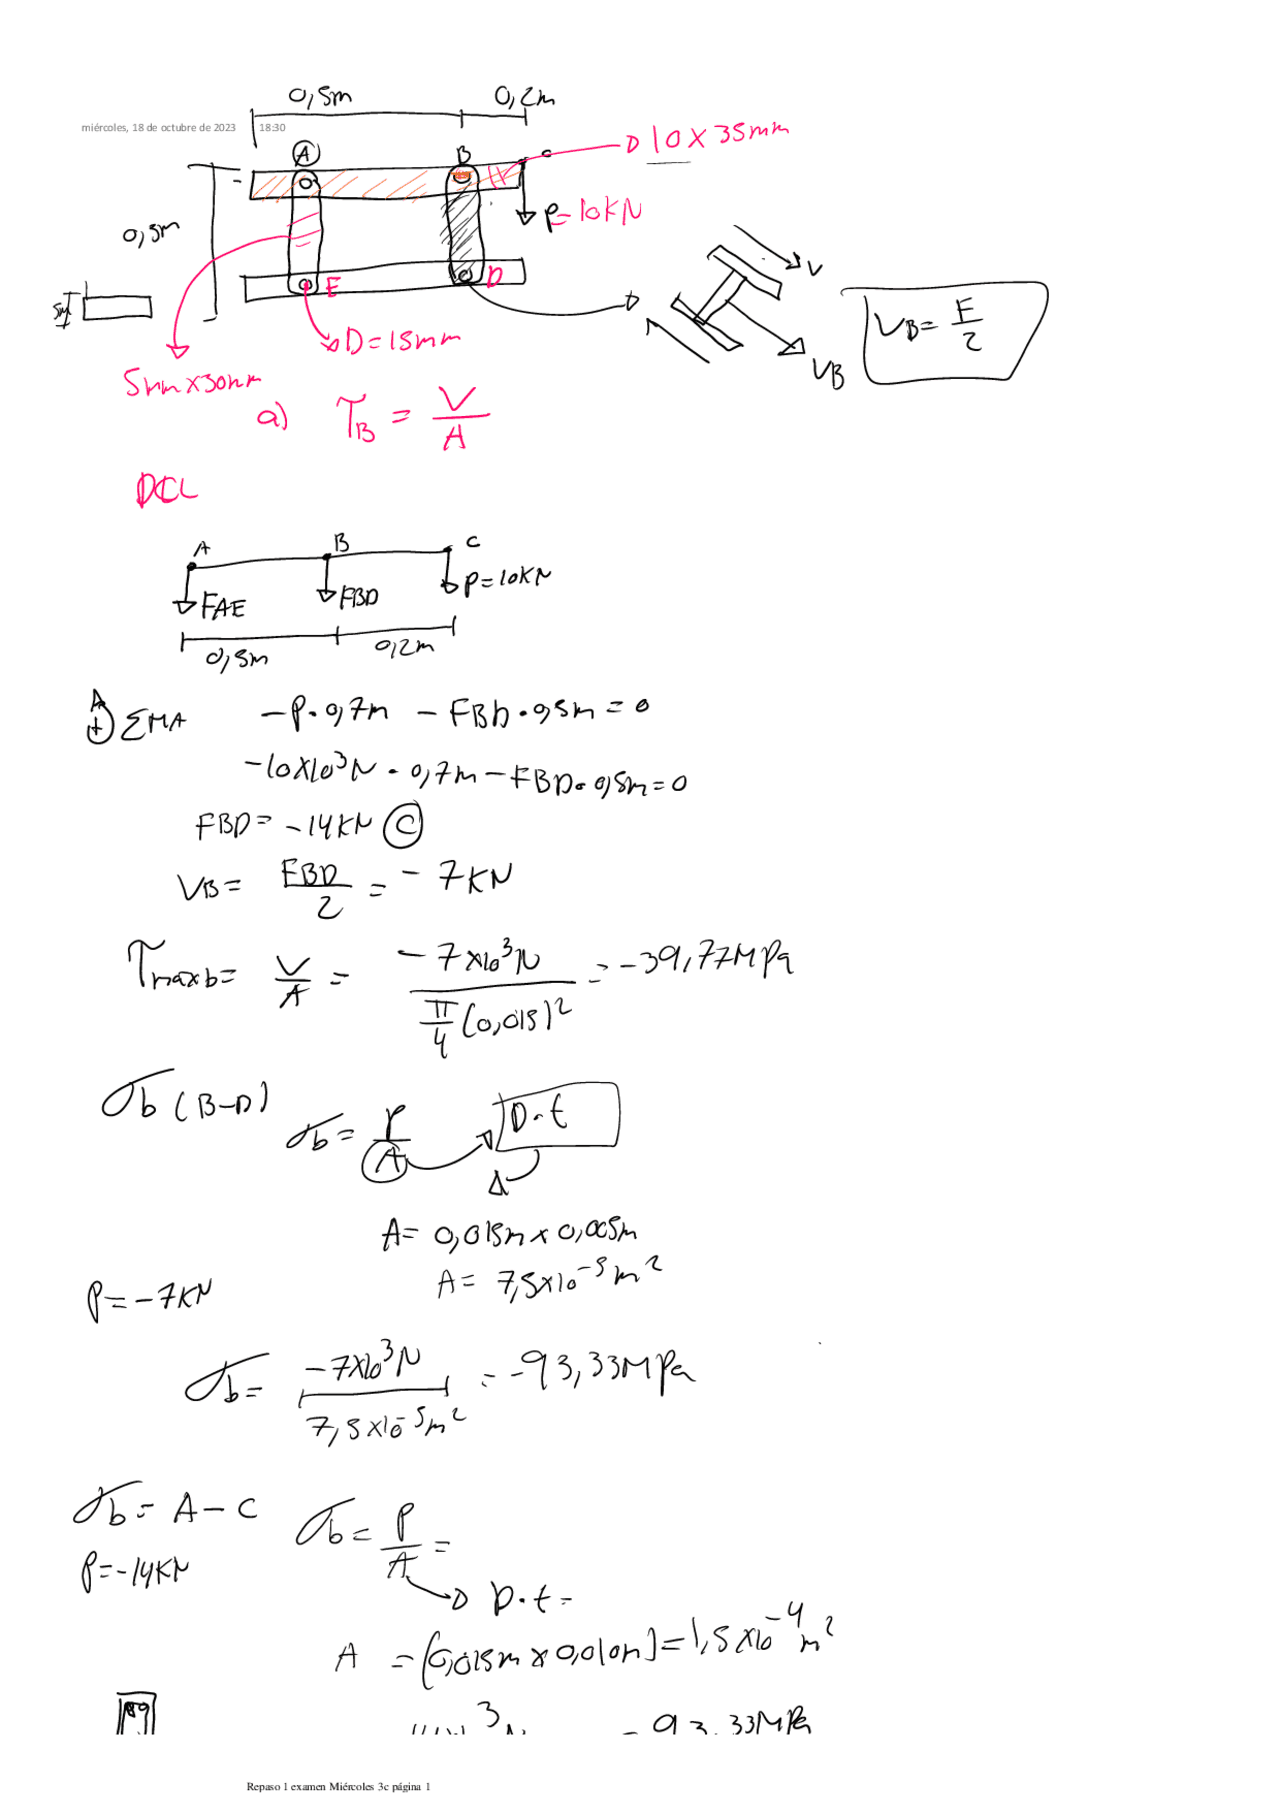 0,5m 0,2m
miércoles, 18 de octubre de 2023 18:30
A B c D 10 X 35mm
P=10KN
0,5m
E D
V
VB = F/2
VB
D=15mm
5mm x30mm
a) τB = V/A
DCL
A B C
FAE FBD P=10KN
0,5m 0,2m
+ ΣMA -P·0,7m - FBD·0,5m=0
-10X10³N·0,7m-FBD·0,5m=0
FBD= -14KN C
VB= FBD/2 = -7KN
τmaxb= V/A = -7x10³N / π/4 (0,015)² = -39,77MPa
σb (B-D)
σb= P/A D·t
A= 0,015m x 0,005m
A= 7,5x10⁻⁵m²
P=-7KN
σb= -7X10³N / 7,5x10⁻⁵m² = -93,33MPa
σb= A-C σb= P/A =
P=-14KN
D·t=
A =(0,015m x 0,010m)=1,5x10⁻⁴m²
-93.33MPa
Repaso 1 examen Miércoles 3c página 1